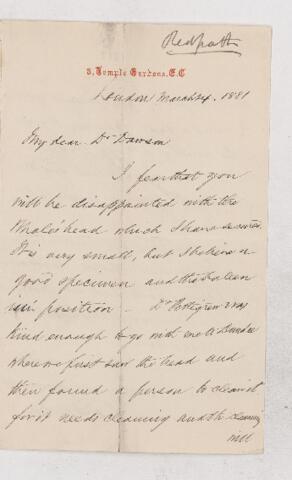 Redpath
3, Temple Gardens, E.C
London March 24. 1881
My dear Dr Dawson
I fear that you
will be disappointed with the
Whale's head which I have
It is very small, but I believe a
good specimen and the baleen
in position - Dr Pettigrew was
kind enough to go with me to Dundee
where we first saw the head and
then found a person to clean it
for it needs cleaning and the cleaning
will